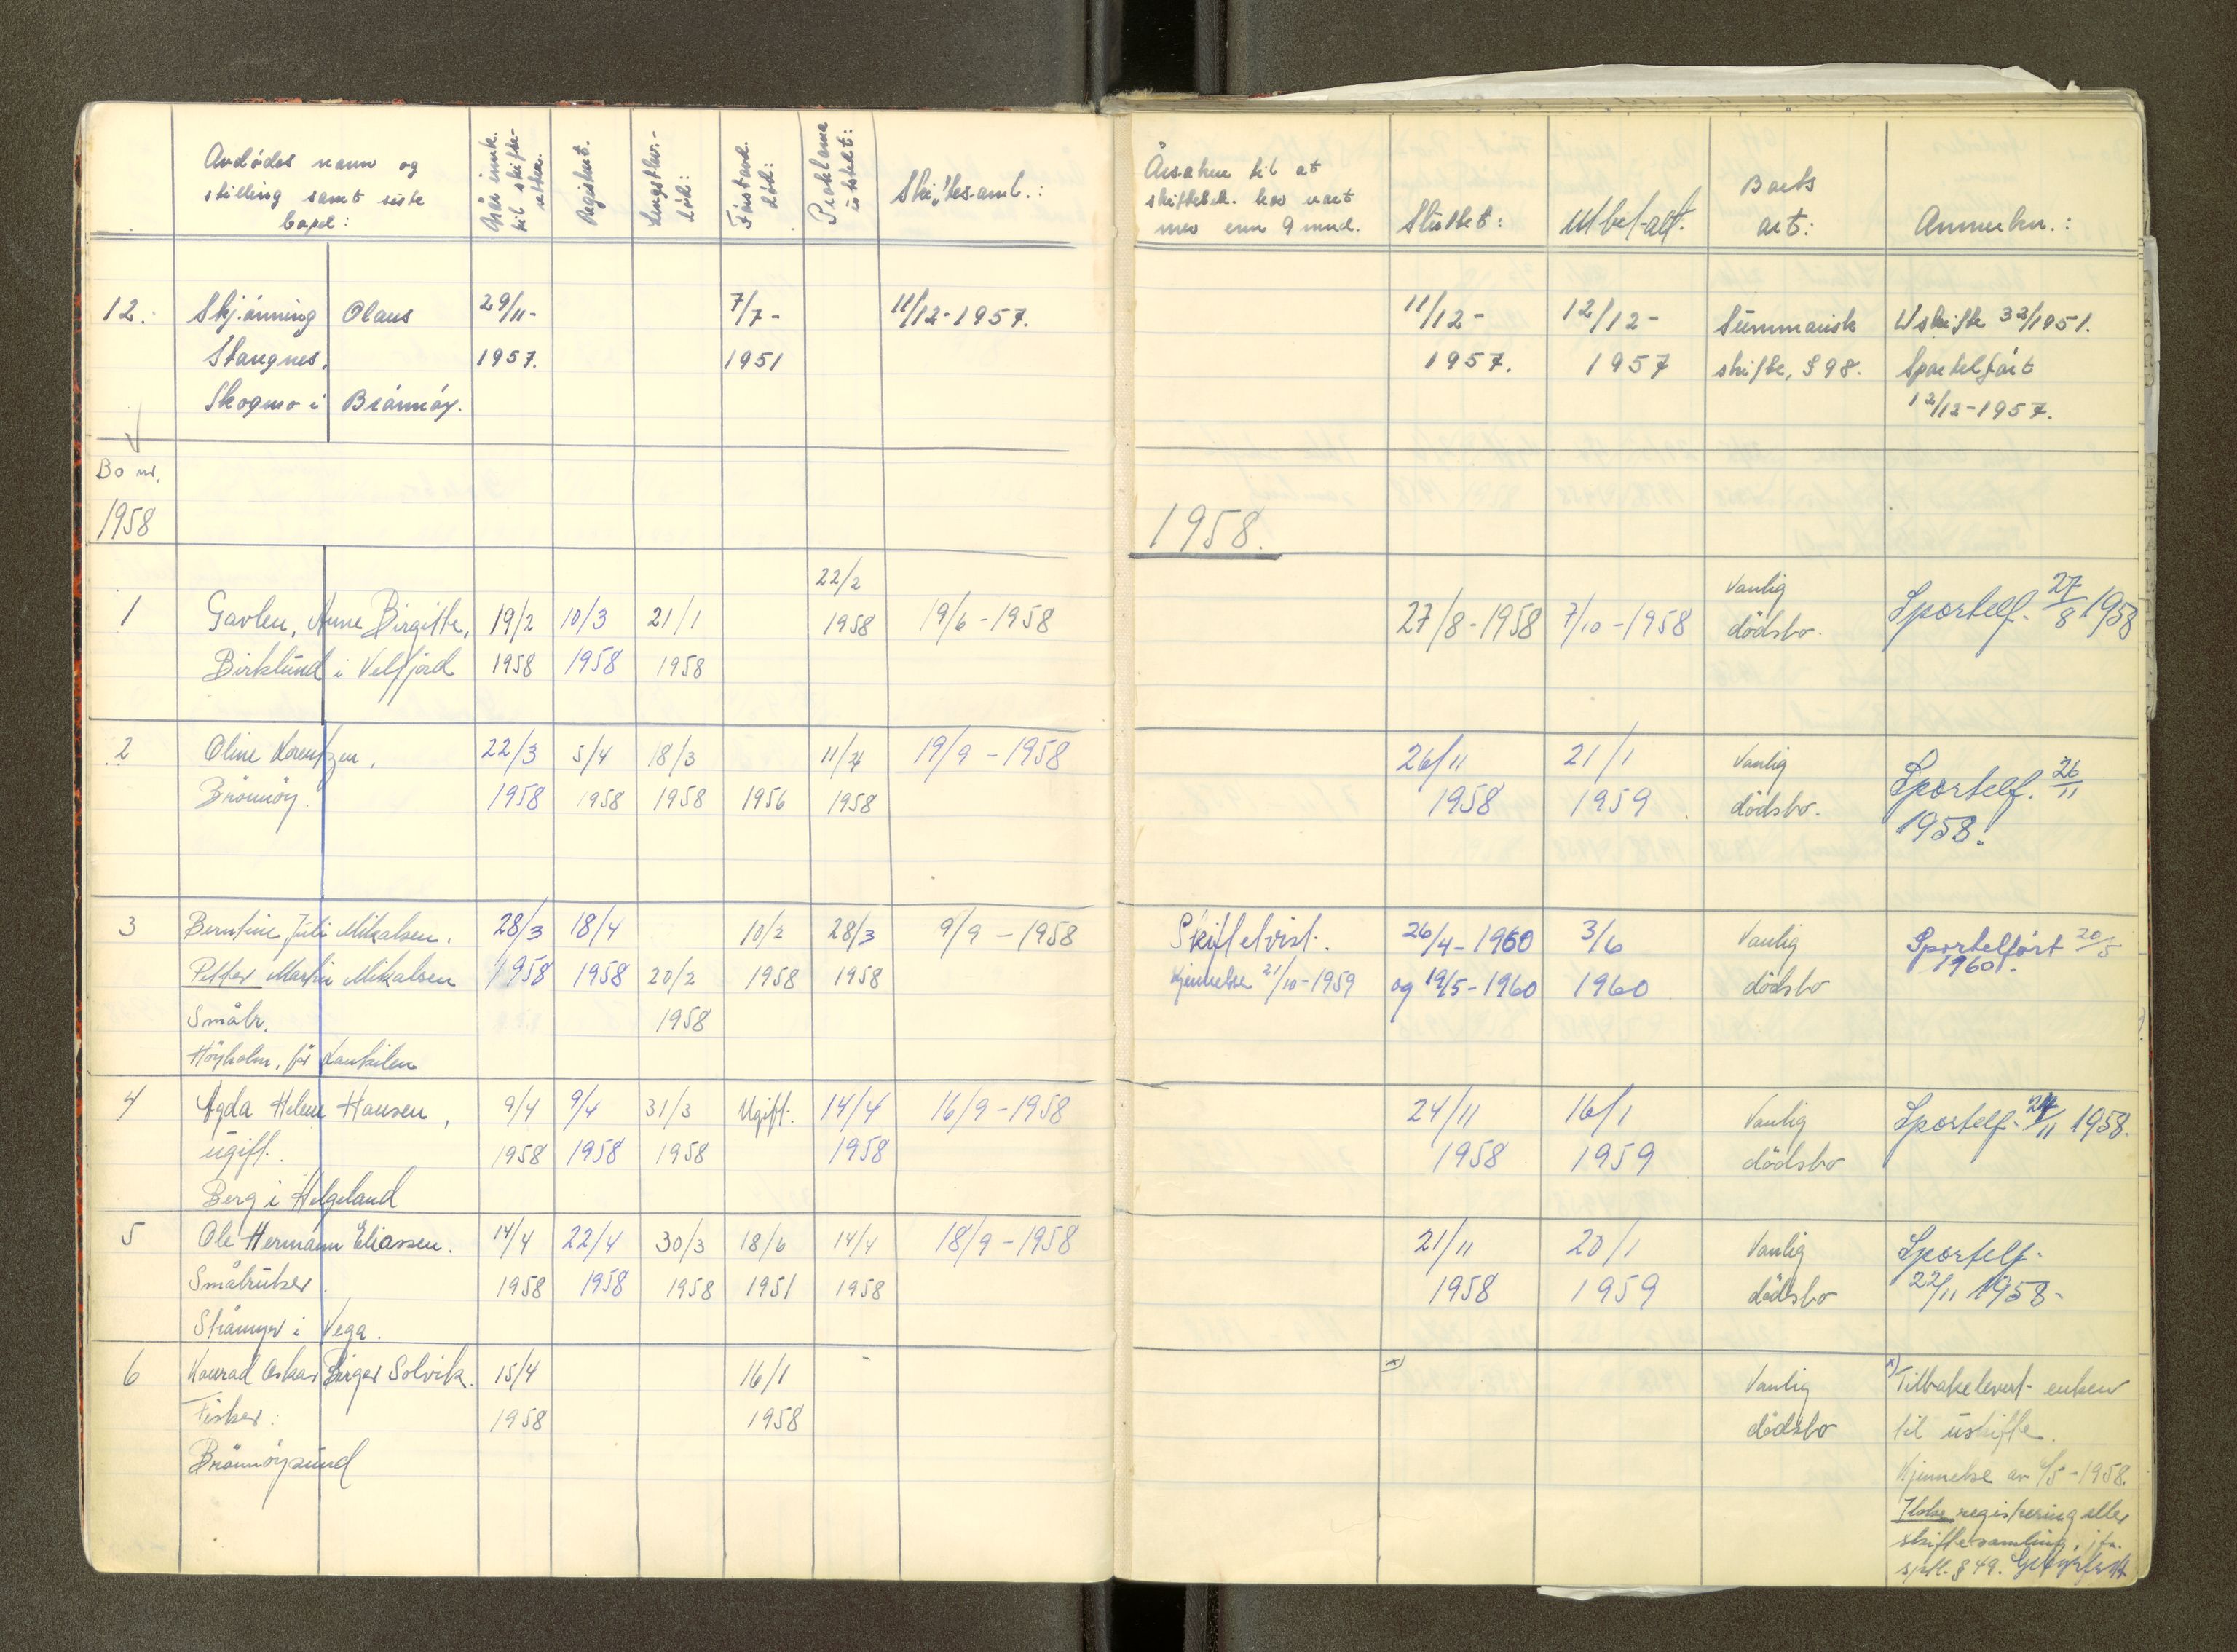 Avdødes navn og
stilling samt siste
bopel:
Når innk.
til skifte-
retten.
Registrert.
Lengstlev.
død:
Førstavd.
død:
Proklama
utstedt:
Skiftesaml.:
Årsaken til at
skiftebeh. har vart
mer enn 9 mnd.
Sluttet:
Utbetalt:
Boets
art:
Anmerkn.:
12. Skjønning Olaus 29/11- 7/7- 11/12-1957. 11/12- 12/12- Summarisk Uskifte 32/1951.
Stangnes, 1957. 1951 1957. 1957 skifte, § 98. Sportelført
Skogmo i Brønnøy. 12/12-1957.
Bo nr.
1958 1958.
22/2 Vanlig
1 Gavlen, Anne Birgitte, 19/2 10/3 21/1 1958 19/6-1958 27/8-1958 7/10-1958 dödsbo. Sportelf. 27/8 1958
Birklund i Velfjord 1958 1958 1958
2 Oline Lorentzen, 22/3 5/4 18/3 11/4 19/9-1958 26/11 21/1 Vanlig Sportelf. 26/11
Brönnöy. 1958 1958 1958 1956 1958 1958 1959 dödsbo. 1958.
3 Berntine Juli Mikalsen. 28/3 18/4 10/2 28/3 9/9-1958 Skiftetvist. 26/4-1960 3/6 Vanlig Sportelført 20/5
Petter Martin Mikalsen 1958 1958 20/2 1958 1958 Kjennelse 21/10-1959 og 19/5-1960 1960 dödsbo 1960.
Småbr. 1958
Höyholm, før
4 Agda Helene Hansen, 9/4 9/4 31/3 Ugift. 14/4 16/9-1958 24/11 16/1 Vanlig Sportelf. 24/11 1958.
ugift. 1958 1958 1958 1958 1958 1959 dödsbo
Berg i Helgeland
5 Ole Hermann Eliassen. 14/4 22/4 30/3 18/6 14/4 18/9-1958 21/11 20/1 Vanlig Sportelf.
Småbruker. 1958 1958 1958 1951 1958 1958 1959 dödsbo 22/11 1958-
i Vega.
6 Konrad Oskar Birger Solvik. 15/4 16/1 x) Vanlig x) Tilbakelevert enken
Fisker. 1958 1958 dödsbo til uskifte.
Brönnöysund Kjennelse av /5-1958.
Ikke registrering eller
skiftesamling, jfr.
spfl. § 49.